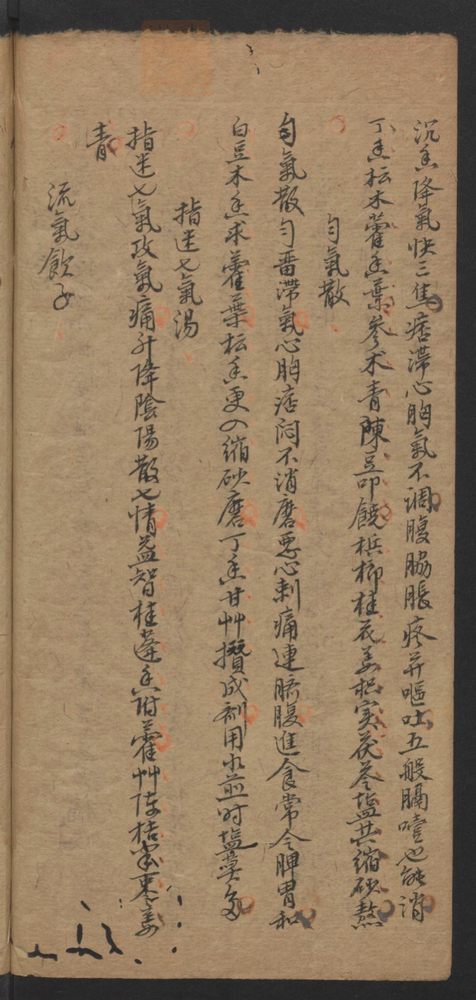 沉香降氣快三焦痞滯心胸氣不調腹脇脹疼并嘔吐五般膈噎也能消
丁香枟木藿香葉參术青陳豆叩饒梹榔桂花姜枳实茯苓塩共縮砂熬
勻氣散
勻氣散勻番滯氣心胸痞悶不消磨惡心刺痛連臍腹進食常令脾胃和
白豆木香求藿葉枟香更入縮砂磨丁香甘艸攢成劑用水煎时塩莫多
指迷七氣湯
指迷七氣攻氣痛升降陰陽散七情益智桂蓬香附藿艸陳桔半棗姜
青
流氣飲子